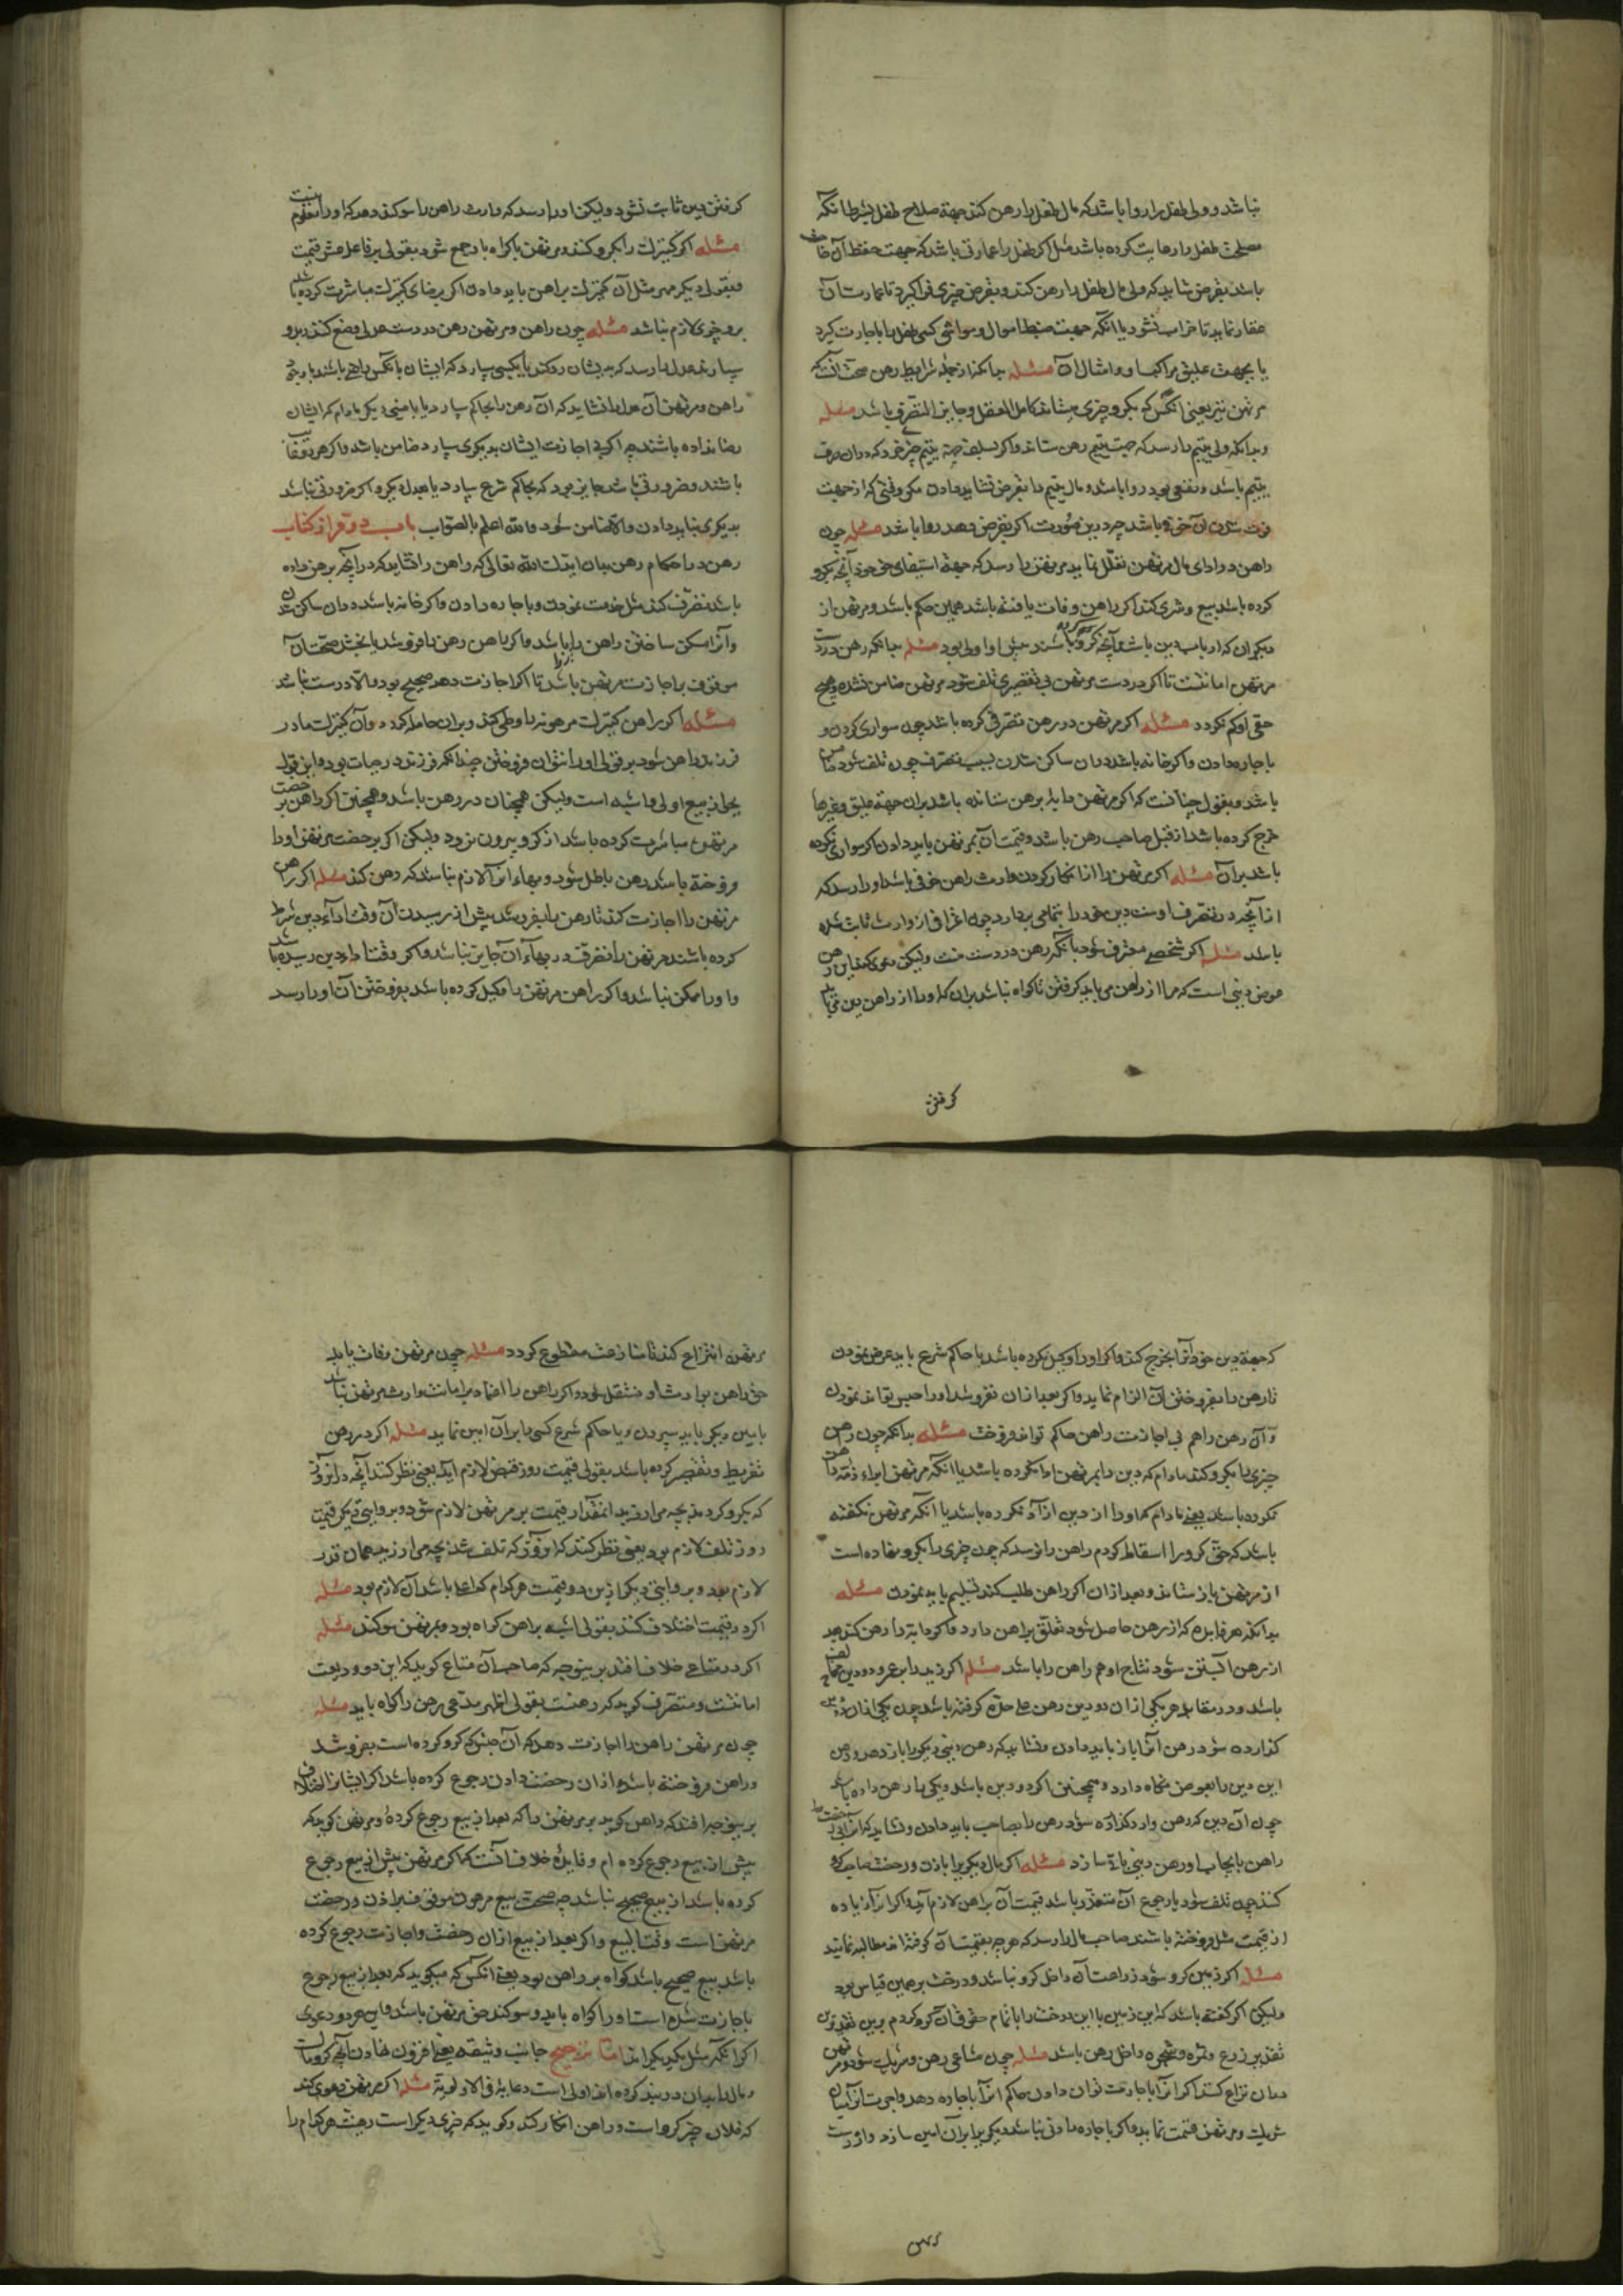 نباشد و ولی طفل را روا باشد که مال طفل را رهن کند جهة صلاح طفل بشرط آنکه
مصلحت طفل را رعایت کرده باشد مثل اکر طفل را عمارتی باشد که جهت حفظ آن
باشد بقرض شاید که ولی مال طفل را رهن کند و بقرض چیزی فرا کیرد تا عمارت آن
عقار نماید تا خراب نشود یا انکه جهت ضبط اموال و مواشی کسی طفل را باجارت کیرد
یا بجهت علیق مراکب او و امثال آن مسئله بدانکه از جمله شرایط رهن صحت آنست که
مرتهن نیز یعنی انکس که بکرو چیزی بستاند کامل العقل و جایز التصرف باشد مسئله
و بدانکه ولی یتیم را رسد که جهت یتیم رهن ستاند و اکر بسلف جهة یتیم چیزی خرد که در آن صرفه
یتیم باشد و نفعی بود روا باشد و مال یتیم را بقرض نشاید دادن مکر وقتی که از جهت
فوت شدن آن خوفی باشد چه درین صورت اکر بقرض دهد روا باشد مسئله چون
راهن در ادای مال مرتهن تعلل نماید مرتهن را رسد که جهة استیفای حق خود آنچه بکرو
کرده باشد بیع و شری کند اکر راهن وفات یافته باشد همین حکم باشد و مرتهن از
دیکران که ارباب دین باشند آنچه کرو کرده باشند بدین اولی بود مسئله بدانکه رهن در دست
مرتهن امانتست تا اکر در دست مرتهن بی تقصیری تلف شود مرتهن ضامن نشده و هیچ
حقی او کم نکردد مسئله اکر مرتهن در رهن تصرفی کرده باشد چون سواری کردن و
باجاره دادن و اکر خانه باشد در آن ساکن شدن بسبب تصرف چون تلف شود ضامن
باشد و بقول چنانست که اکر مرتهن دابه برهن ستانده باشد بر آن جهة علیق و غیرها
خرج کرده باشد از قبل صاحب رهن باشد و قیمت آن بمرتهن باید دادن اکر سواری نکرده
باشد بر آن مسئله اکر مرتهن را از انکار کردن وارث راهن خوفی باشد او را رسد که
از آنچه در تصرف اوست دین خود را بتمامی بردارد چون اعترافی از وارث ثابت شده
باشد مسئله اکر شخصی معترف شود بآنکه رهن در دست منست ولیکن دعوی کند این رهن
عوض دینی است که مرا از راهن می باید کرفتن تا کواه نباشد بر آن که او را از راهن دین می باید
کرفتن
کرفتن دین ثابت نشود ولیکن او را رسد که وارث راهن را سوکند دهد که او را معلوم نیست
مسئله اکر کنیزک را بکرو کند و مرتهن باکراه با او جمع شود بقولی بر فاعل عشر قیمت
و بقولی دیکر مهر مثل آن کنیزک براهن باید دادن اکر برضای کنیزک مباشرت کرده باشد
برو چیزی لازم نباشد مسئله چون راهن و مرتهن رهن در دست عدلی وضع کنند و برو
سپارند عدل را رسد که بدیشان رد کند یا بکسی سپارد که ایشان بآنکس راضی باشند
راهن و مرتهن آن عدل را نشاید که آن رهن را بحاکم سپارد یا بامینی دیکر مادام که ایشان
رضا نداده باشند چه اکر بی اجازت ایشان بدیکری سپارد ضامن باشد و اکر هر دو غایب
باشند و ضرورتی باشد جایز بود که بحاکم شرع سپارد یا بعدل دیکر و اکر ضرورتی نباشد
بدیکری نباید دادن و الا ضامن شود و الله اعلم بالصواب باب دوم از کتاب
رهن در احکام رهن بدان ایدک الله تعالی که راهن را نشاید که در آنچه برهن داده
باشد تصرف کند مثل خدمت نمودن و باجاره دادن و اکر خانه باشد در آن ساکن شدن
و آنرا مسکن ساختن راهن را نباشد و اکر راهن رهن را فروشد یا بخشد صحت آن
موقوف باجازت مرتهن باشد تا اکر اجازت دهد صحیح بود و الا درست نباشد
مسئله اکر راهن کنیزک مرهونه را وطی کند و بر آن حامله کردد و آن کنیزک مادر
فرزند راهن شود بر قولی او را نتوان فروختن چندانکه فرزند در حیات بود و این قول
بجواز بیع اولی و اشبه است ولیکن همچنان در رهن باشد و همچنین اکر راهن برخصت
مرتهن مباشرت کرده باشد از کرو بیرون نرود ولیکن اکر برخصت مرتهن او را
فروخته باشد رهن باطل شود و بهاء او لازم نباشد که رهن کند مسئله اکر راهن
مرتهن را اجازت کند تا رهن را بفروشد پیش از رسیدن آن وقت اداء دین شرط
کرده باشند مرتهن را تصرف در بهاء آن جایز نباشد و اکر وقت اداء دین رسیده باشد
و او را ممکن نباشد و اکر راهن مرتهن را وکیل کرده باشد بفروختن آن او را رسد
که جهة دین خود آنرا بخرج کند و اکر او را وکیل نکرده باشد با حاکم شرع باید عرض نمودن
تا رهن را بفروختن آن الزام نماید و اکر بعد از آن نفروشد او را حبس تواند نمودن
و آن رهن را هم بی اجازت راهن حاکم تواند فروخت مسئله بدانکه چون راهن
چیزی را بکرو کند مادام که دین را بمرتهن ادا نکرده باشد یا انکه مرتهن ابراء ذمه راهن
نکرده باشد یعنی مادام که او را از دین ازاد نکرده باشد یا آنکه مرتهن نکفته
باشد که حق کرو را اسقاط کردم راهن را نرسد که چون چیزی را بکرو نهاده است
از مرتهن باز ستاند و بعد از آن اکر راهن طلب کند تسلیم باید نمودن مسئله
بدانکه هر فایده که از رهن حاصل شود تعلق براهن دارد و اکر دابه را رهن کند بعد
از رهن آبستن شود نتاج او هم راهن را باشد مسئله اکر زید را بعمرو دو دین
باشد و در مقابل هر یکی از آن دو دین رهن علی حده کرفته باشد چون یکی از آن دو دین
کذارده شود رهن آنرا باز باید دادن و نشاید که رهن دینی دیکر را باز دهد و رهن
این دین را بعوض نکاه دارد و همچنین اکر دو دین باشد و یکی را رهن داده باشد
چون آن دین که رهن دارد کذارده شود رهن را بصاحب باید دادن و نشاید که
راهن بایجاب او رهن دینی باقی سازد مسئله اکر مال دیکری را باذن و رخصت صاحب کرو
کند چون تلف شود یا رجوع آن متعذر باشد قیمت آن براهن لازم آید و اکر آنرا زیاده
از قیمت مثل فروخته باشند صاحب مال را رسد که هر چه بقیمت آن کرفته اند مطالبه نماید
مسئله اکر زمین کرو شود زراعت آن داخل کرو نباشد و درخت بر همین قیاس بود
ولیکن اکر کفته باشد که این زمین یا این درخت را با تمام حقوق آن کرو کردم برین تقدیر
تقدیر زرع و ثمره و شجره داخل رهن باشد مسئله چون مشاعی رهن و شریک شود و مرتهن
در آن نزاع کنند اکر آنرا باجارت توان دادن حاکم آنرا باجاره دهد و اجرت آنرا میان
شریک و مرتهن قسمت نماید و اکر باجاره دادنی نباشد دیکری را بر آن امین سازد و از دست
مرتهن
مرتهن انتزاع کند تا منازعت منقطع کردد مسئله چون مرتهن وفات یابد
حق راهن بوارث او منتقل شود و اکر راهن را اعتماد بر امانت وارث مرتهن نباشد
بامین دیکر باید سپردن و یا حاکم شرع کسی را بر آن امین نماید مسئله اکر در رهن
تفریط و تقصیر کرده باشد بقولی قیمت روز قبض لازم آید یعنی نظر کنند آنچه در آن روز
که بکرو کرده بچه می ارزید آنمقدار قیمت بر مرتهن لازم شود و بروایتی دیکر قیمت
روز تلف لازم بود یعنی نظر کنند که آنروز که تلف شد بچه می ارزید همان قدر
لازم بود و بروایتی دیکر ازین دو قیمت هر کدام که اعلا باشد آن لازم بود مسئله
اکر در قیمت اختلاف کنند بقولی اشبه براهن کواه بود و بمرتهن سوکند مسئله
اکر در متاعی خلاف افتد برینوجه که صاحب آن متاع کوید که این دو ودیعت
امانتست و متصرف کوید که رهنست بقولی اظهر مدعی رهن را کواه باید مسئله
چون مرتهن راهن را اجازت دهد که آن جنس که کرو کرده است بفروشد
و راهن فروخته باشد و از آن رخصت دادن رجوع کرده باشد اکر ایشانرا اختلاف
برینوجه افتد که راهن کوید بر مرتهن را که بعد از بیع رجوع کرده و مرتهن کوید که
پیش از بیع رجوع کرده ام و فایده خلاف آنست که اکر مرتهن پیش از بیع رجوع
کرده باشد آن بیع صحیح نباشد چه صحت بیع مرهون موقوف بر اذن و رخصت
مرتهن است وقت البیع و اکر بعد از بیع از آن رخصت و اجازت رجوع کرده
باشد بیع صحیح باشد کواه بر راهن بود یعنی انکس که میکوید که بعد از بیع رجوع
باجازت شده است او را کواه باید و سوکند حق مرتهن باشد
جانب وثیقه یعنی افزون نهادن آنچه کرو
اولی است رعایة فی الاولویة مسئله اکر مرتهن دعوی کند
که فلان چیز کرو است و راهن انکار کند و کوید که چیزی دیکر است رهنست هر کدام را